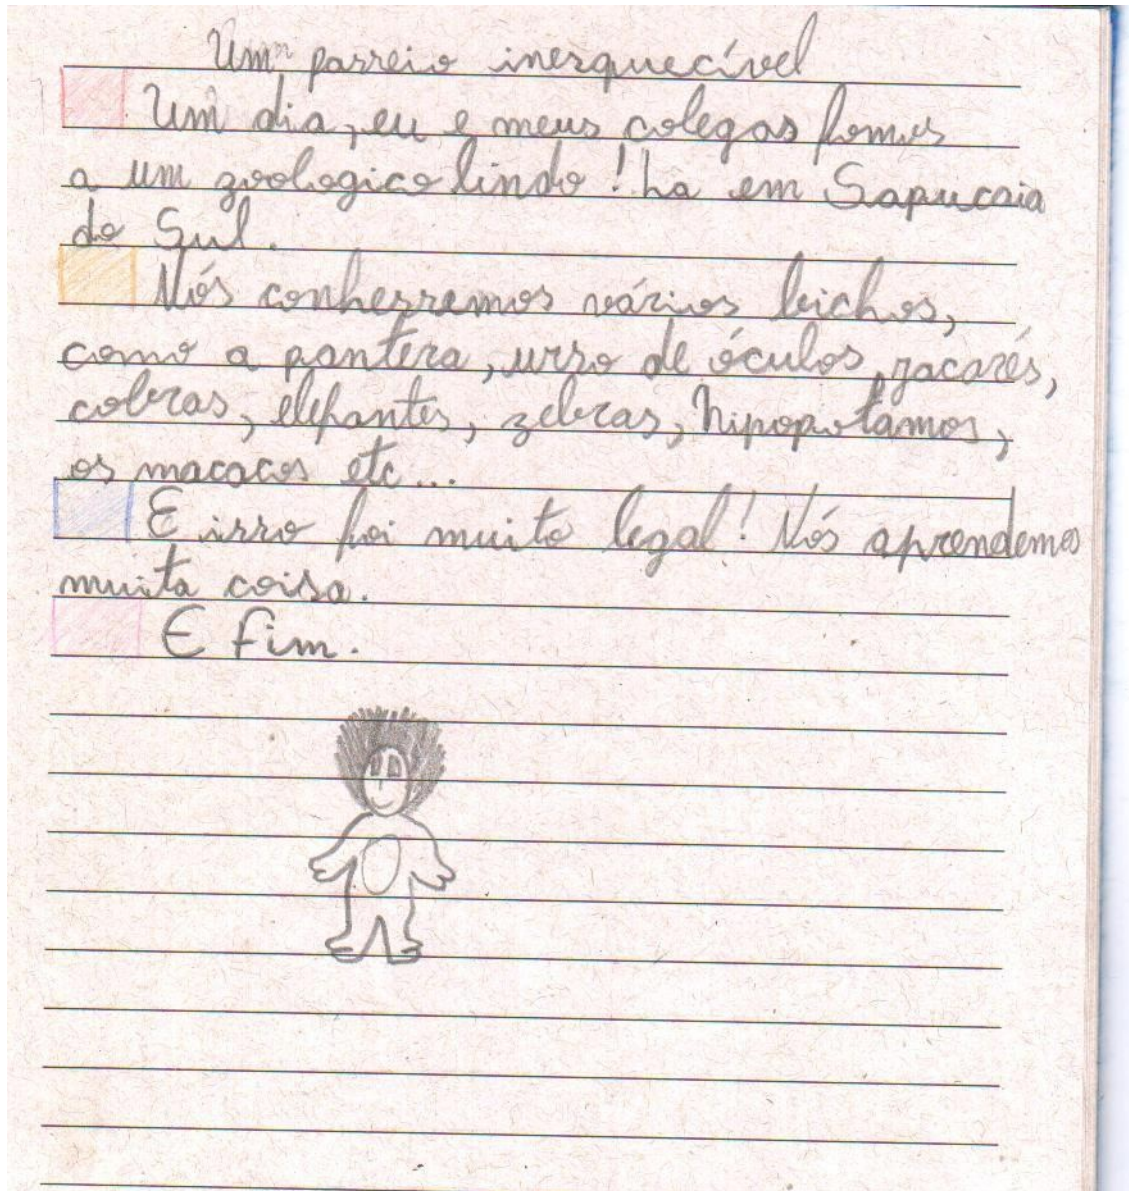 Um passeio inesquecível
Um dia, eu e meus colegas fomos
a um zoologico lindo! La em Sapucaia
do Sul.
Nós conhessemos vários bichos,
como a pantera, urso de óculos, jacarés,
cobras, elefantes, zebras, hipopotamos,
os macacos etc...
E isso foi muito legal! Nós aprendemos
muita coisa.
E fim.